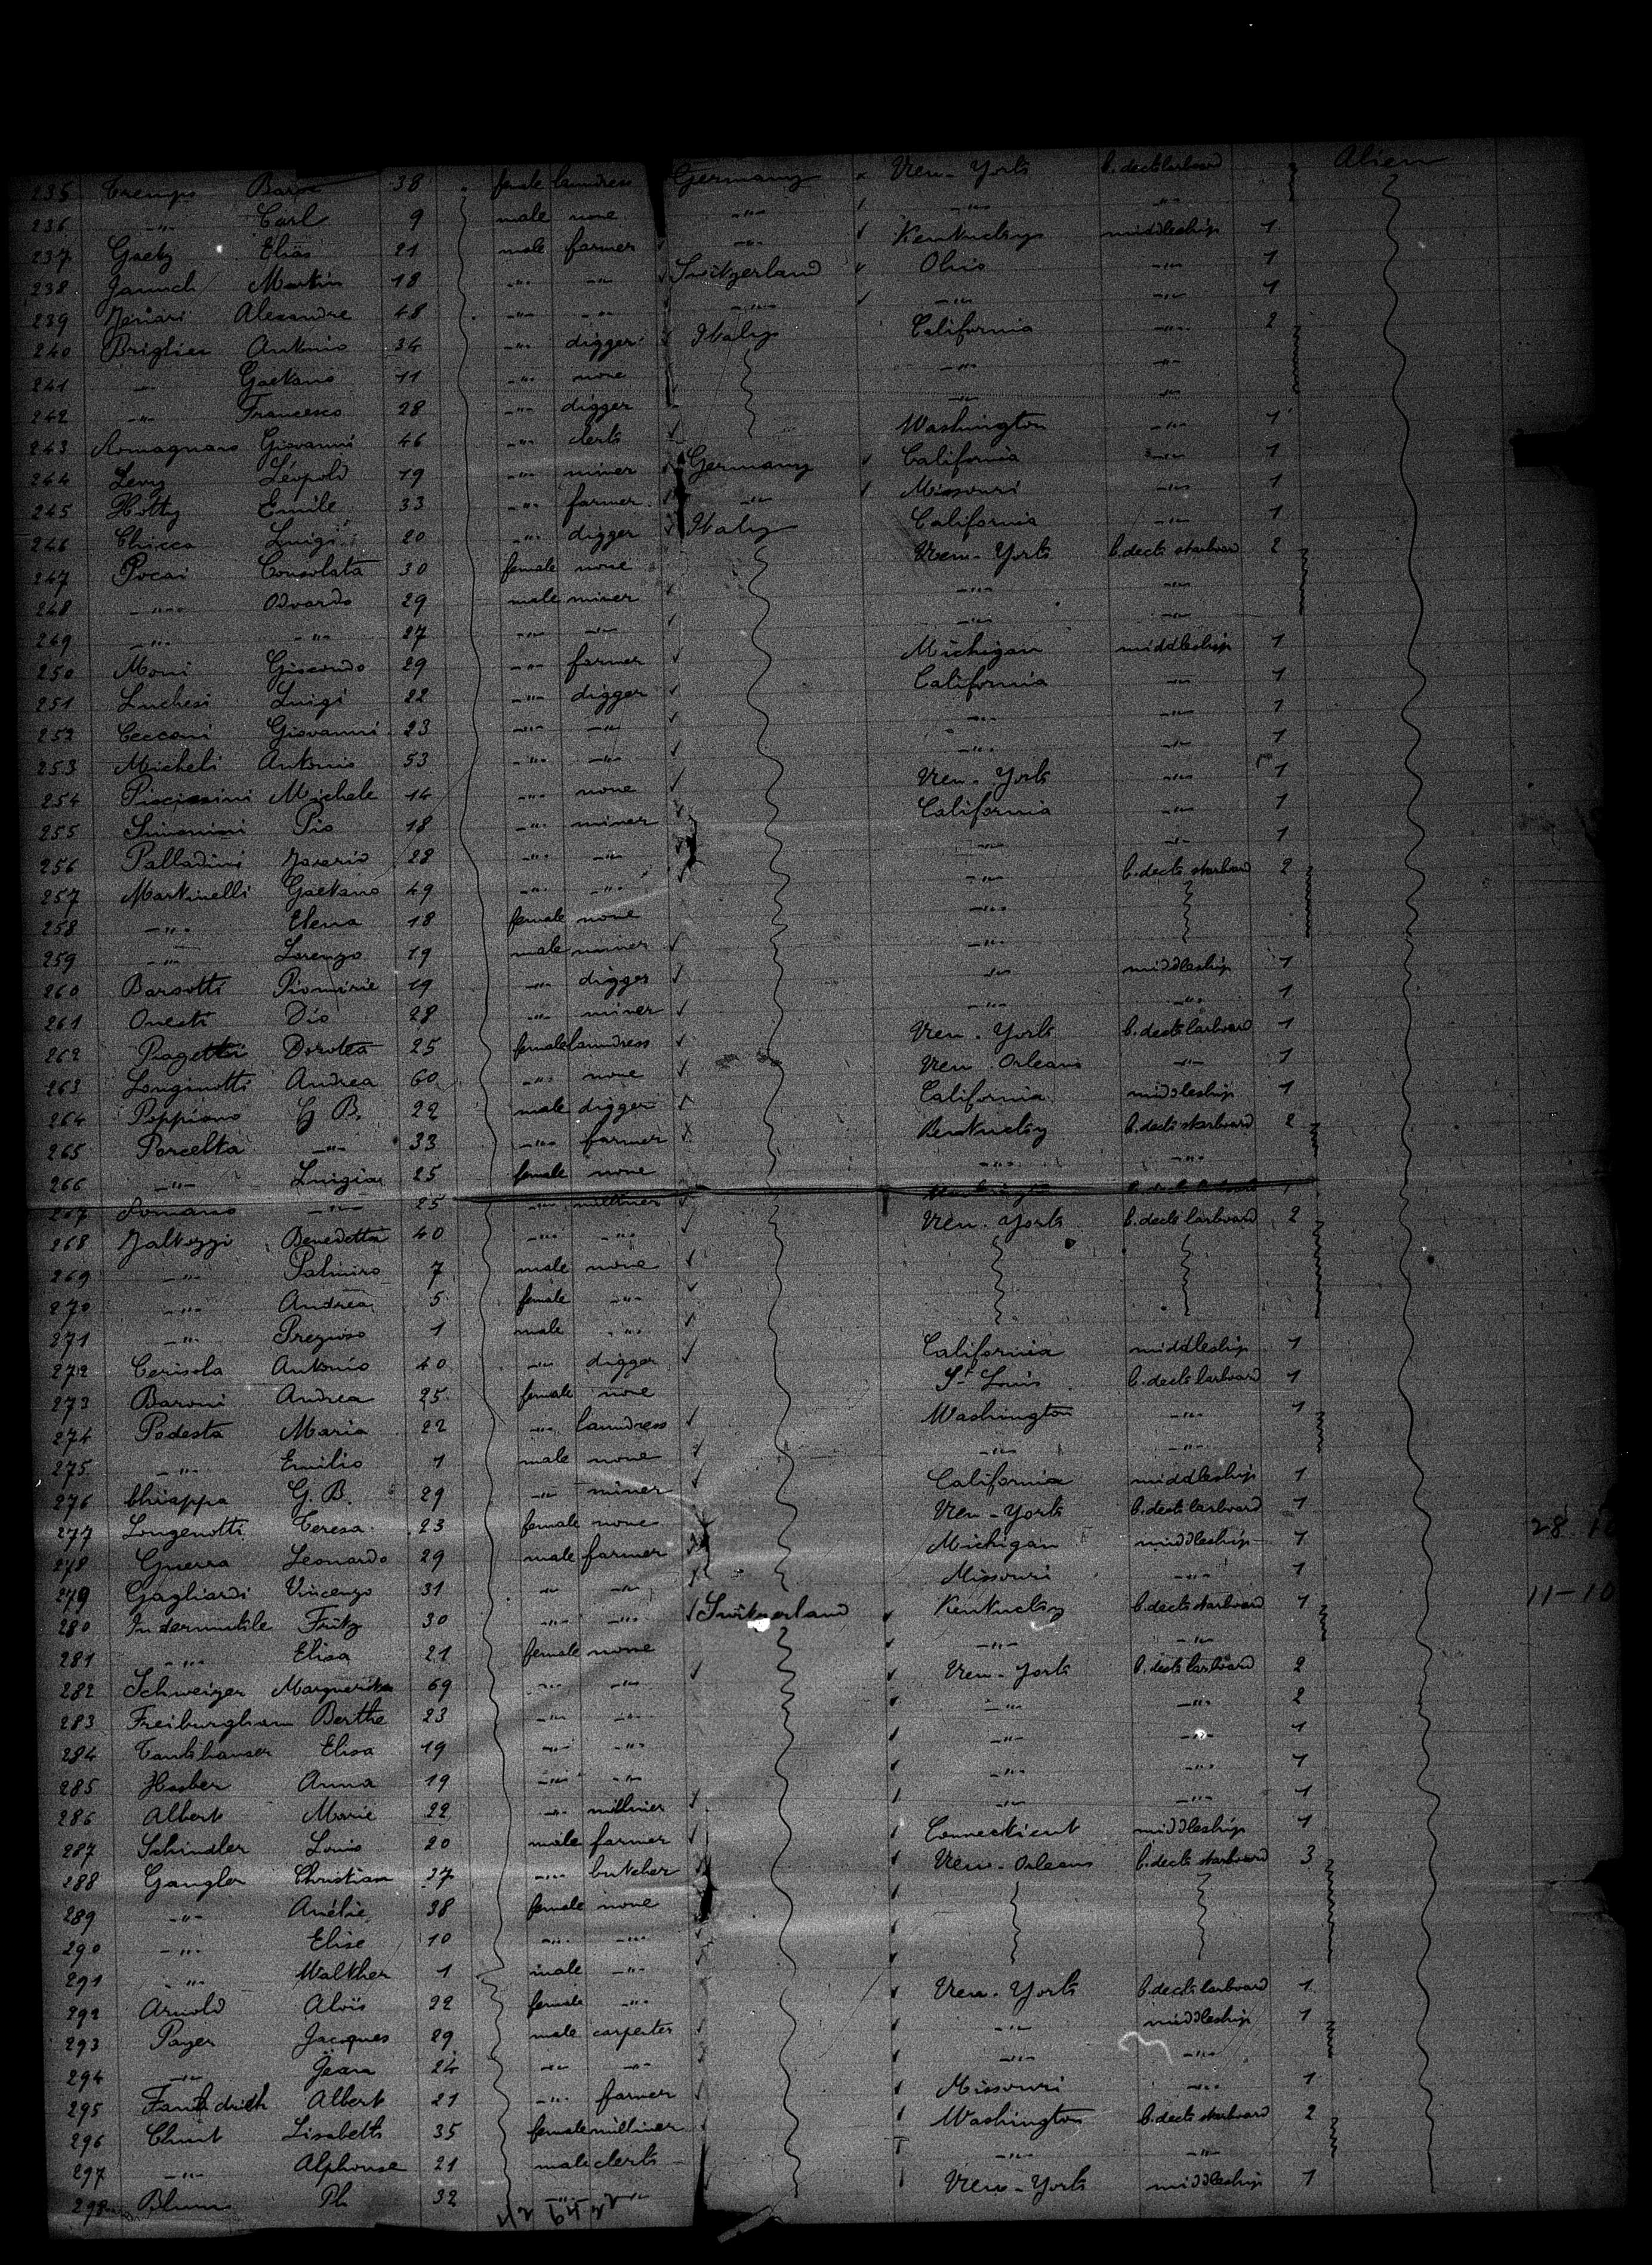 235 Tremps 38 female laundress Germany New-York b. deck larboard Alien
236 -"- Carl 9 male none -"- -"- -"-
237 Gaetz Elias 21 male farmer -"- Kentucky middleship 1
238 Martin 18 -"- -"- Switzerland Ohio -"- 1
239 Alexandre 48 -"- -"- -"- -"- -"- 1
240 Antonio 34 -"- digger Italy California -"- 2
241 -"- Gaetano 11 -"- none -"- -"-
242 -"- Francesco 28 -"- digger -"- -"-
243 Romagnano Giovanni 46 -"- clerk Washington -"- 1
244 Levy Léopold 19 -"- miner Germany California -"- 1
245 Hotty Emile 33 -"- farmer -"- Missouri -"- 1
246 Chicca Luigi 20 -"- digger Italy California -"- 1
247 Pocai Consolata 30 female none New-York b. deck starboard 2
248 -"- Odoardo 29 male miner -"- -"-
249 -"- -"- 27 -"- -"- -"- -"-
250 Moni Giocondo 29 -"- farmer Michigan middleship 1
251 Luchesi Luigi 22 -"- digger California -"- 1
252 Cecconi Giovanni 23 -"- -"- -"- -"- 1
253 Micheli Antonio 53 -"- -"- -"- -"- 1
254 Michele 14 -"- none New-York -"- 1
255 Simonini Pio 18 -"- miner California -"- 1
256 Palladini 28 -"- -"- -"- -"- 1
257 Martinelli Gaetano 49 -"- -"- -"- b. deck starboard 2
258 -"- Elena 18 female none -"-
259 -"- Lorenzo 19 male miner -"-
260 Barsotti 19 -"- digger -"- middleship 1
261 Onesti Dio 28 -"- miner -"- -"- 1
262 Dorotea 25 female laundress New-York b. deck larboard 1
263 Longinotti Andrea 60 -"- none New Orleans -"- 1
264 Poppiano G B. 22 male digger California middleship 1
265 Porcella -"- 33 -"- farmer Kentucky b. deck starboard 2
266 -"- Luigia 25 female none -"- -"-
267 Romano -"- 25 -"- milliner
268 Benedetta 40 -"- -"- New-York b. deck larboard 2
269 -"- Palmiro 7 male none
270 -"- Andrea 5 female -"-
271 -"- Prezioso 1 male -"-
272 Cerisola Antonio 40 -"- digger California middleship 1
273 Baroni Andrea 25 female none St Louis b. deck larboard 1
274 Podesta Maria 22 -"- laundress Washington -"- 1
275 -"- Emilio 1 male none -"- -"-
276 Chiappa G. B. 29 -"- miner California middleship 1
277 Longenotti Teresa 23 female none New-York b. deck larboard 1
278 Guerra Leonardo 29 male farmer Michigan middleship 1
279 Gagliardi Vincenzo 31 -"- -"- Missouri -"- 1 11-10
280 Indermutile Fritz 30 -"- -"- Switzerland Kentucky b. deck starboard 1
281 -"- Elisa 21 female none -"- -"-
282 Schweizer Marguerite 69 -"- -"- New-York b. deck larboard 2
283 Freiburgham Berthe 23 -"- -"- -"- -"- 2
284 Elisa 19 -"- -"- -"- -"- 1
285 Anna 19 -"- -"- -"- -"- 1
286 Albert Marie 22 -"- milliner -"- -"- 1
287 Schindler Louis 20 male farmer Connecticut middleship 1
288 Gangler Christian 37 -"- butcher New-Orleans b. deck starboard 3
289 -"- Amélie 38 female none
290 -"- Elise 10 -"- -"-
291 -"- Walther 1 male -"-
292 Arnold Aloïs 22 female -"- New-York b. deck larboard 1
293 Payer Jacques 29 male carpenter -"- middleship 1
294 -"- Jean 24 -"- -"- -"- -"-
295 Albert 21 -"- farmer Missouri -"- 1
296 Lisabeth 35 female milliner Washington b. deck starboard 2
297 -"- Alphonse 21 male clerk -"- -"-
298 Blum Ph 32 -"- -"- New-York middleship 1